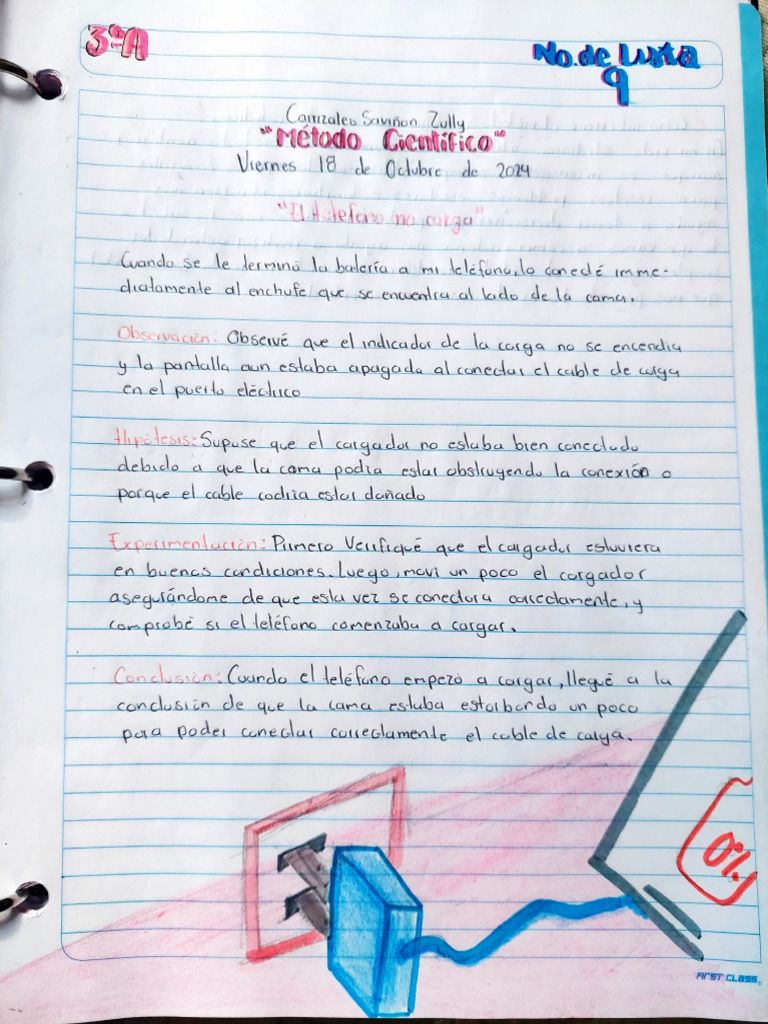 3°A
No. de Lista
9
Canizales Saviñon Zully
"Método Científico"
Viernes 18 de Octubre de 2024
"El telefono no carga"
Cuando se le terminó la batería a mi teléfono, lo conecté imme-
diatamente al enchufe que se encuentra al lado de la cama.
Observación: Observé que el indicador de la carga no se encendia
y la pantalla aun estaba apagada al conectar el cable de carga
en el puerto eléctrico
Hipótesis: Supuse que el cargador no estaba bien conectado
debido a que la cama podia estar obstruyendo la conexión o
porque el cable codria estar dañado
Experimentación: Primero Verifiqué que el cargador estuviera
en buenas condiciones. Luego, moví un poco el cargador
asegurándome de que esta vez se conectara correctamente, y
comprobé si el teléfono comenzaba a cargar.
Conclusión: Cuando el teléfono empezó a cargar, llegué a la
conclusión de que la cama estaba estorbando un poco
para poder conectar correctamente el cable de carga.
0%
FIRST CLASS